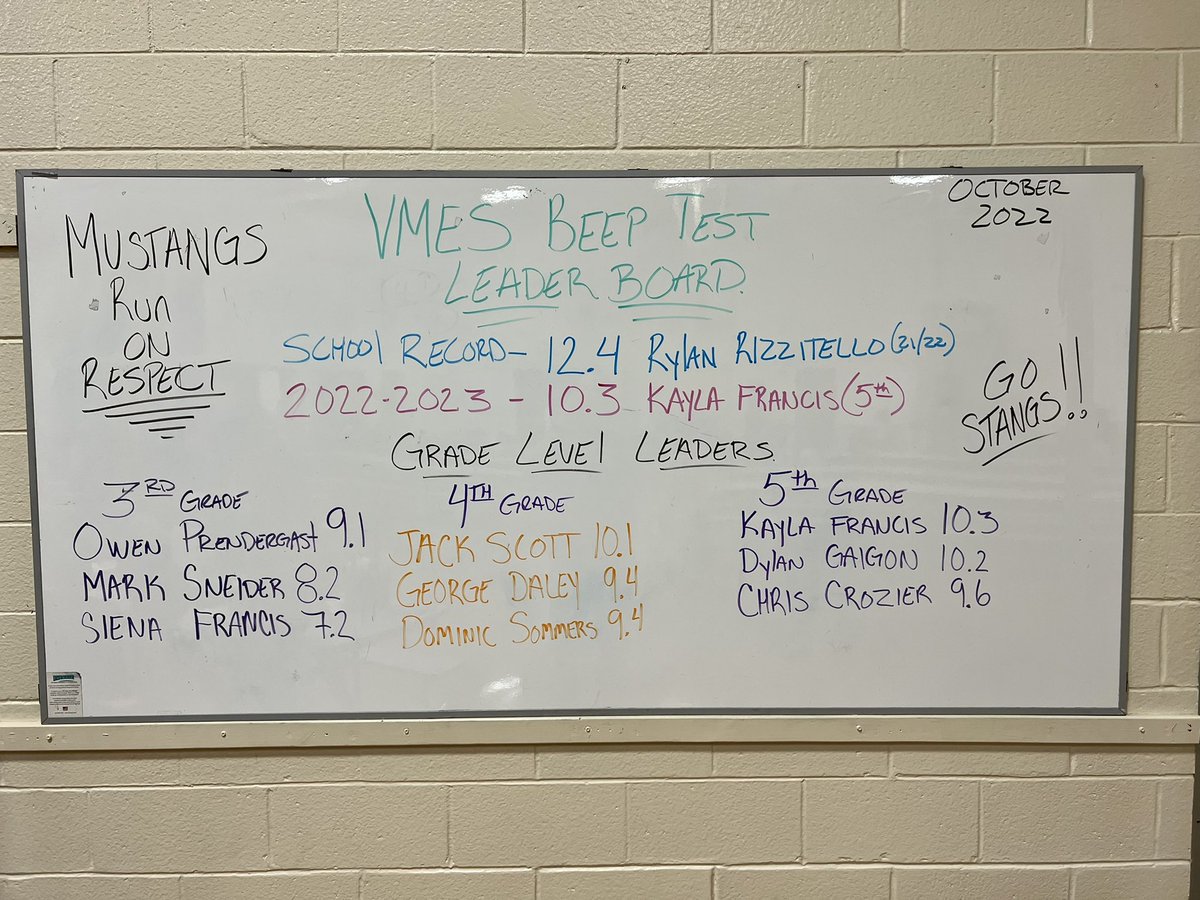 OCTOBER
2022
VMES BEEP TEST
LEADER BOARD
MUSTANGS
Run
ON
RESPECT
SCHOOL RECORD- 12.4 RYLAN RIZZITELLO (21/22)
2022-2023 - 10.3 KAYLA FRANCIS (5th)
GO
STANGS!!
GRADE LEVEL LEADERS
3RD GRADE
OWEN PRENDERGAST 9.1
MARK SNEIDER 8.2
SIENA FRANCIS 7.2
4TH GRADE
JACK SCOTT 10.1
GEORGE DALEY 9.4
DOMINIC SOMMERS 9.4
5th GRADE
KAYLA FRANCIS 10.3
DYLAN GAIGON 10.2
CHRIS CROZIER 9.6